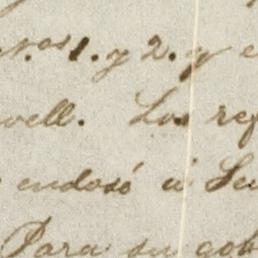 nos 1. y 2. y e
well. Los ref
endosó á Se
Para su gob